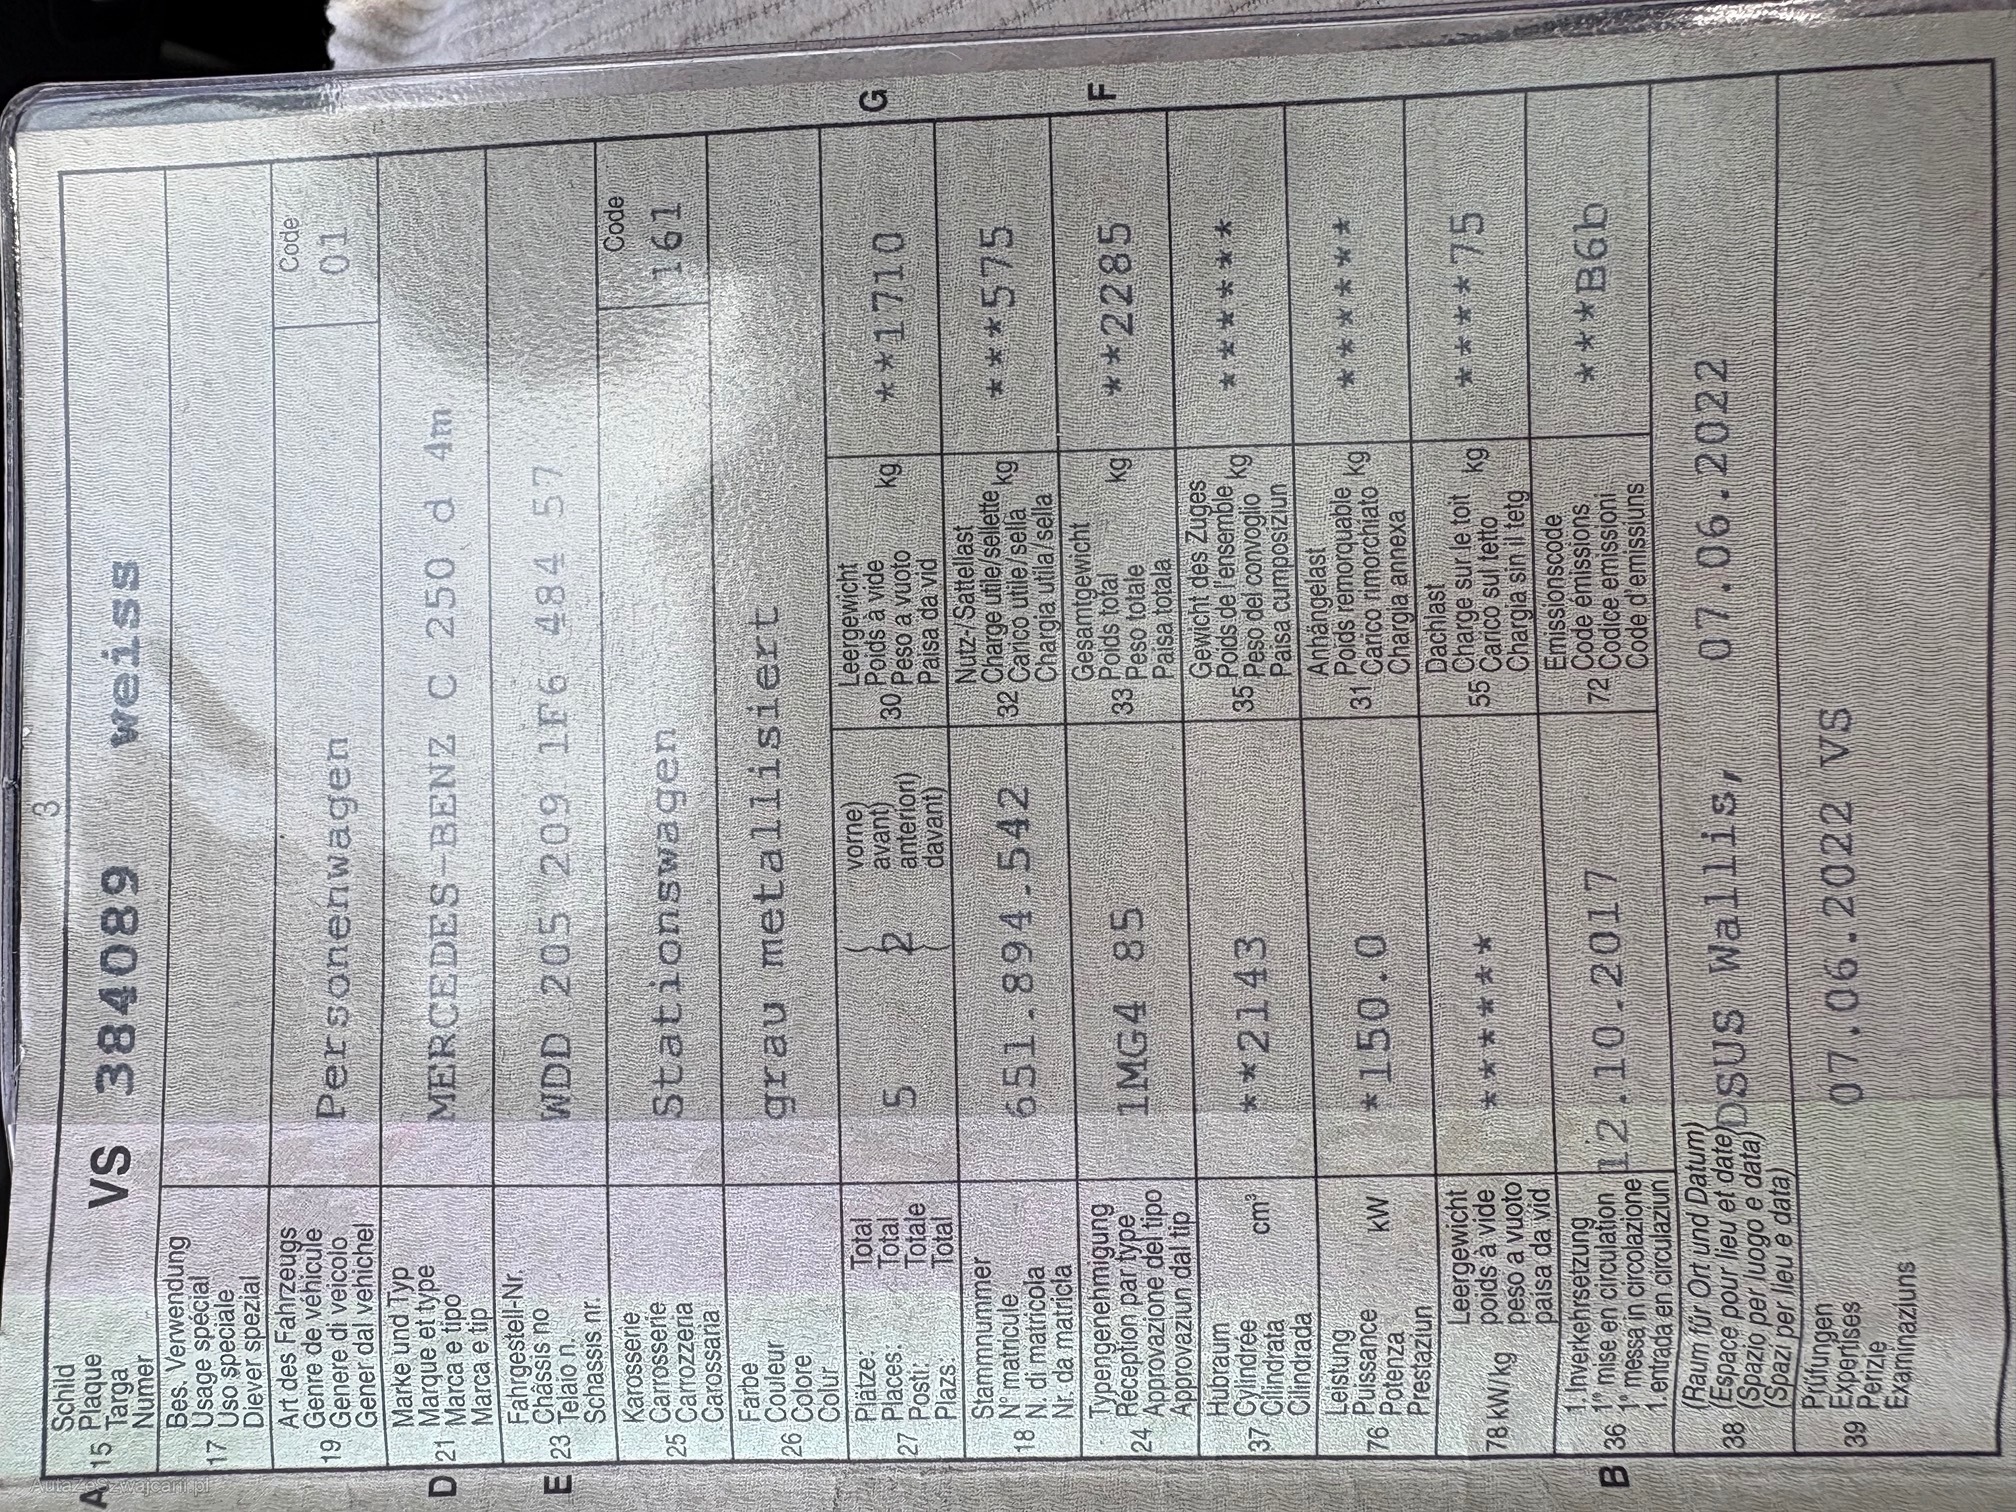 3
Schild
A 15 Plaque VS 384089 weiss
Targa
Numer
Bes. Verwendung
17 Usage spécial
Uso speciale
Diever spezial
Art des Fahrzeugs Code
19 Genre de véhicule Personenwagen 01
Genere di veicolo
Gener dal vehichel
Marke und Typ
D 21 Marque et type MERCEDES-BENZ C 250 d 4m
Marca e tipo
Marca e tip
Fahrgestell-Nr.
E 23 Châssis no WDD 205 209 1F6 484 57
Telaio n.
Schassis nr.
Karosserie Code
25 Carrosserie Stationswagen 161
Carrozzeria
Carossaria
Farbe
26 Couleur grau metallisiert
Colore
Colur
Plätze: Total vorne)
27 Places: Total 5 { 2 avant)
Posti: Totale anteriori)
Plazs. Total davant)
Leergewicht
30 Poids à vide kg **1710 G
Peso a vuoto
Paisa da vid
Stammnummer
18 N° matricule 651.894.542
N. di matricola
Nr. da matricla
Nutz-/Sattellast
32 Charge utile/sellette kg ***575
Carico utile/sella
Chargia utila/sella
Typengenehmigung
24 Réception par type 1MG4 85
Approvazione del tipo
Approvaziun dal tip
Gesamtgewicht
33 Poids total kg **2285 F
Peso totale
Paisa totala
Hubraum
37 Cylindrée cm³ **2143
Cilindrata
Cilindrada
Gewicht des Zuges
35 Poids de l'ensemble kg *******
Peso del convoglio
Paisa cumposiziun
Leistung
76 Puissance kW *150.0
Potenza
Prestaziun
Anhängelast
31 Poids remorquable kg *******
Carico rimorchiato
Chargia annexa
Leergewicht
78 kW/kg poids à vide ******
peso a vuoto
paisa da vid
Dachlast
55 Charge sur le toit kg *****75
Carico sul tetto
Chargia sin il tetg
1. Inverkehrsetzung
B 36 1re mise en circulation 12.10.2017
1a messa in circolazione
1. entrada en circulaziun
Emissionscode
72 Code émissions ***B6b
Codice emissioni
Code d'emissiuns
(Raum für Ort und Datum)
38 (Espace pour lieu et date) DSUS Wallis, 07.06.2022
(Spazio per luogo e data)
(Spazi per lieu e data)
Prüfungen
39 Expertises 07.06.2022 VS
Perizie
Examinaziuns